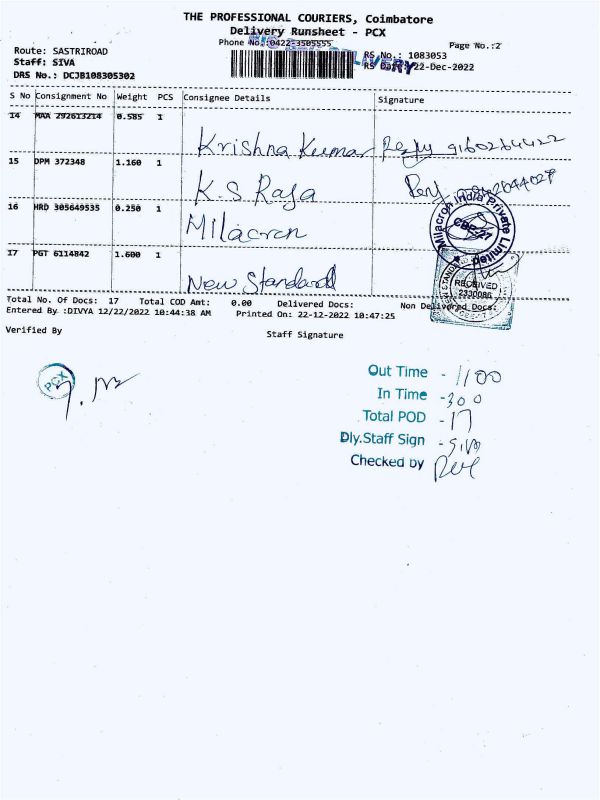 THE PROFESSIONAL COURIERS, Coimbatore
Delivery Runsheet - PCX
Phone No.:0422-3505555
Page No.:2
Route: SASTRIROAD
Staff: SIVA
DRS No.: DCJB108305302
RS No.: 1083053
RS Date: 22-Dec-2022
S No Consignment No Weight PCS Consignee Details Signature
14 MAA 292613214 0.585 1
Krishna Kumar 9160264422
15 DPM 372348 1.160 1
K.S Raja
16 HRD 305649535 0.250 1
Milacron
Milacron India Private Limited
CBE-21
17 PGT 6114842 1.600 1
New Standard
RECEIVED
2330086
Total No. Of Docs: 17 Total COD Amt: 0.00 Delivered Docs: Non Delivered Docs:
Entered By :DIVYA 12/22/2022 10:44:38 AM Printed On: 22-12-2022 10:47:25
Verified By Staff Signature
PCX
Out Time - 1100
In Time - 300
Total POD - 17
Dly.Staff Sign - Siva
Checked by